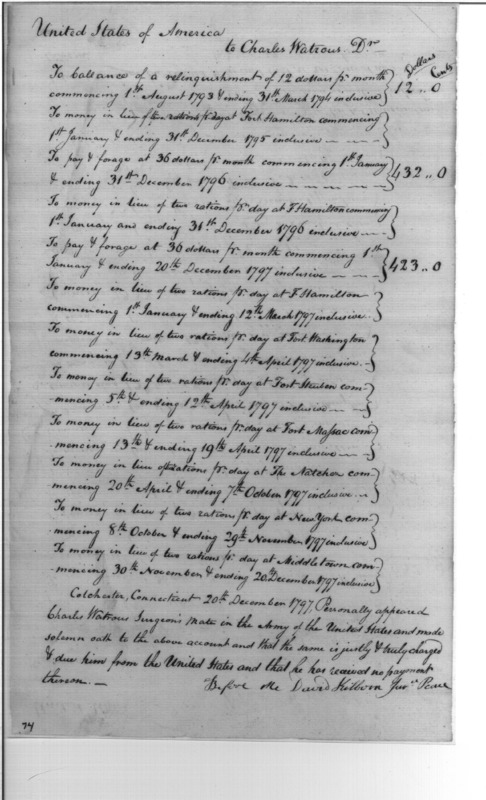 United States of America
to Charles Watrous Dr
Dollars Cents
To ballance of a relinquishment of 12 dollars pr month
commencing 1st August 1793 & ending 31st March 1794 inclusive } 12 .. 0
To money in lieu of two rations pr day at Fort Hamilton commencing
1st January & ending 31st December 1795 inclusive
To pay & forage at 36 dollars pr month commencing 1st January
& ending 31st December 1796 inclusive } 432 .. 0
To money in lieu of two rations pr day at F Hamilton commencing
1st January and ending 31st December 1796 inclusive
To pay & forage at 36 dollars pr month commencing 1st
January & ending 20th December 1797 inclusive } 423 .. 0
To money in lieu of two rations pr day at F Hamilton
commencing 1st January & ending 12th March 1797 inclusive
To money in lieu of two rations pr day at Fort Washington
commencing 13th March & ending 4th April 1797 inclusive
To money in lieu of two rations pr day at Fort Steuben com
mencing 5th & ending 12th April 1797 inclusive
To money in lieu of two rations pr day at Fort Massac com
mencing 13th & ending 19th April 1797 inclusive
To money in lieu of rations pr day at The Natchez com
mencing 20th April & ending 7th October 1797 inclusive
To money in lieu of two rations pr day at New York com
mencing 8th October & ending 29th November 1797 inclusive
To money in lieu of two rations pr day at Middletown com
mencing 30th November & ending 20th December 1797 inclusive
Colchester, Connecticut 20th December 1797, Personally appeared
Charles Watrous Surgeon's Mate in the Army of the United States and made
solamn oath to the above account and that the same is justly & truly charged
& due him from the United States and that he has received no payment
thereon. —
Before Me David Kilborn Jus. Peace
74